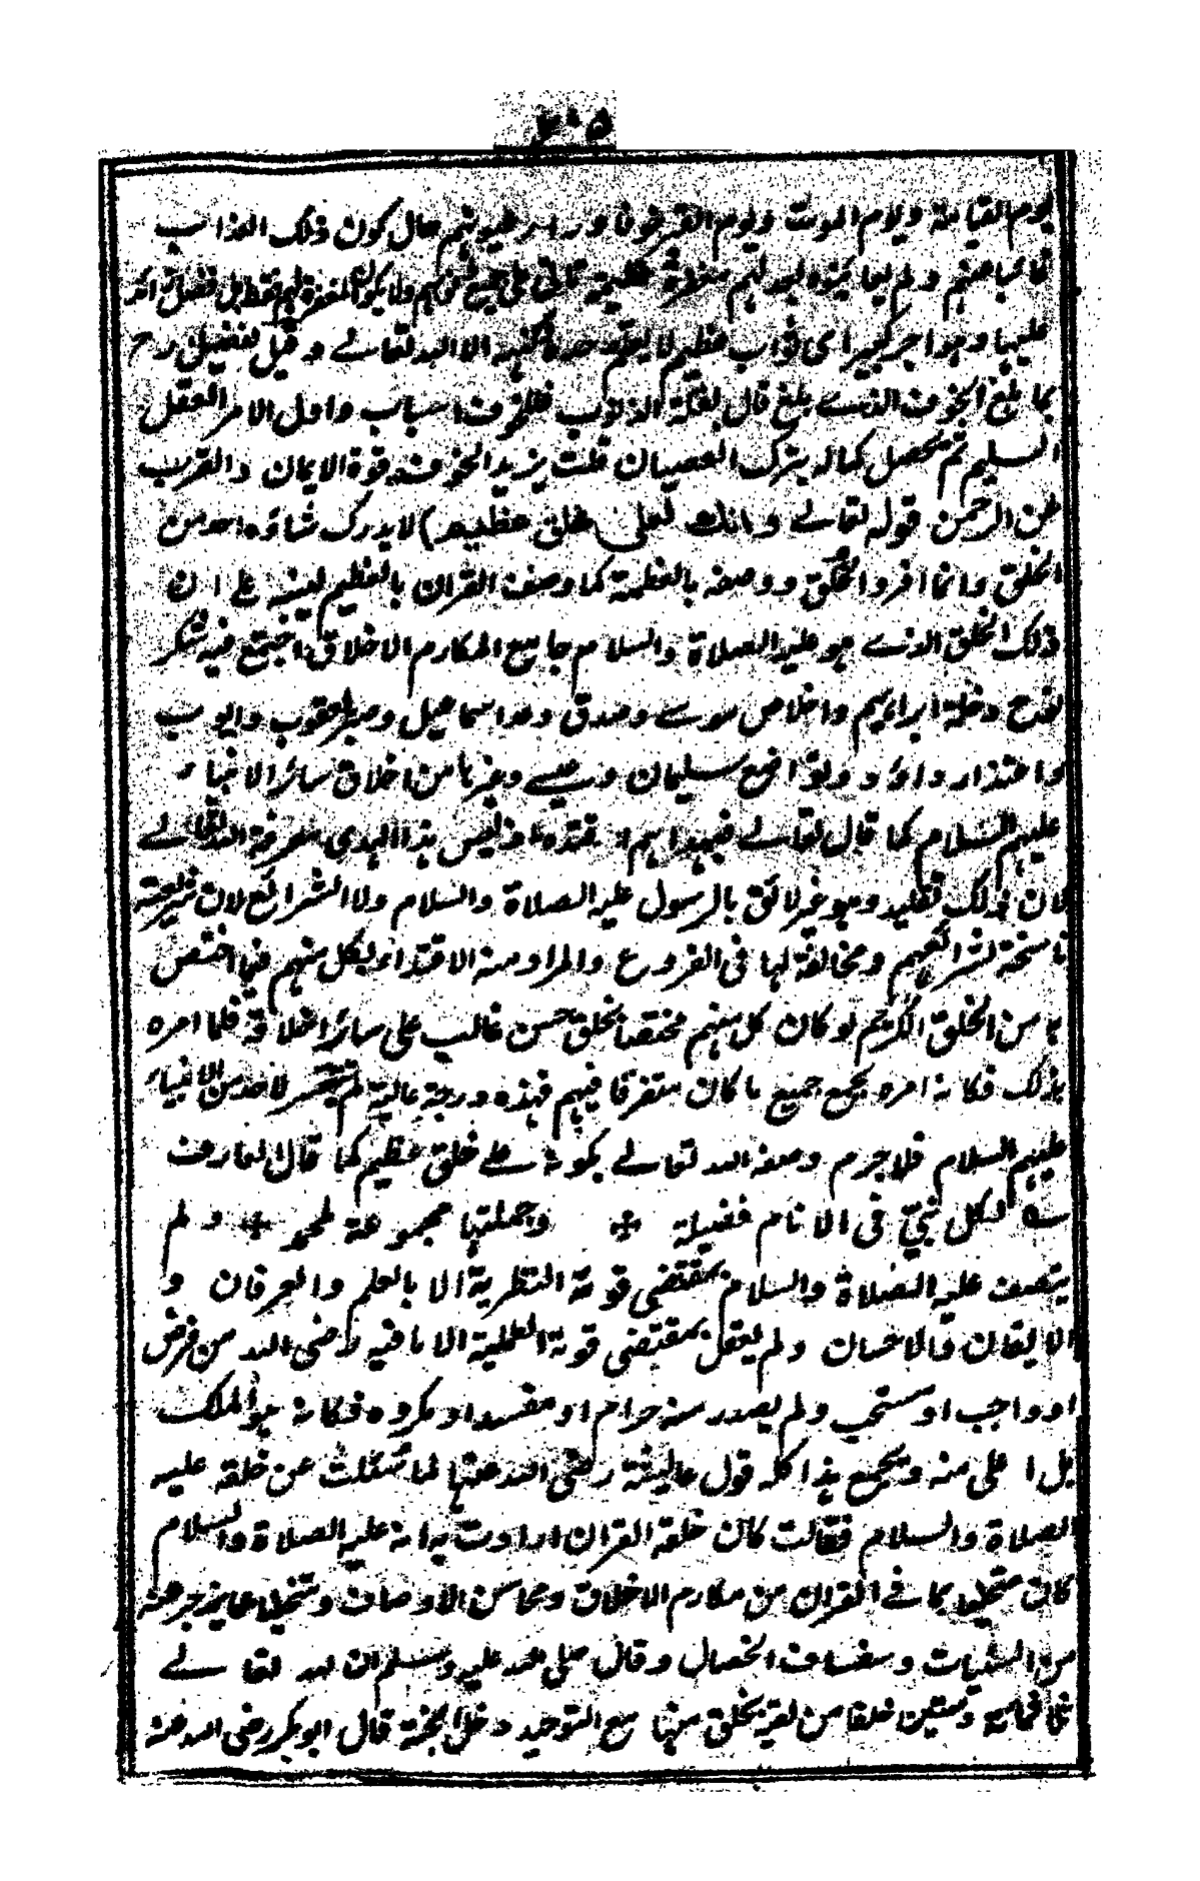 ٢٠٥
يوم القيامة ويوم الموت ويوم القبر خوفا وراء ظهورهم حال كون ذلك العذاب
غائبا عنهم ولم يعاينوه لهم مغفرة عظيمة
عليها وهو اجر كبير اى ثواب عظيم لا يعلم كنهه الا الله تعالى وقيل لفضيل رح
بما بلغ الخوف الذى بلغ قال بقلة الذنوب فللخوف اسباب واول الامر العقل
السليم ثم تحصل كماله بترك العصيان قلت يزيد الخوف بقوة الايمان والقرب
من الرحمن قوله تعالى وانك لعلى خلق عظيم) لا يدرك شاؤه احد من
الخلق وانما افرد الخلق ووصفه بالعظمة كما وصف القران بالعظيم لينبه على ان
ذلك الخلق الذى هو عليه الصلاة والسلام جامع لمكارم الاخلاق اجتمع فيه شكر
نوح وخلة ابراهيم واخلاص موسى وصدق وعد اسماعيل وصبر يعقوب وايوب
واعتذار داؤد وتواضع سليمان وعيسى وغيرها من اخلاق سائر الانبياء
عليهم السلام كما قال تعالى فبهداهم اقتده اذ ليس هذا الهدى معرفة الله تعالى
لان ذلك تقليد وهو غير لائق بالرسول عليه الصلاة والسلام ولا الشرائع لان شريعته
ناسخة لشرائعهم ومخالفة لها فى الفروع والمراد منه الاقتداء بكل منهم فيما اختص
به من الخلق الكريم لو كان كل منهم مختصا بخلق حسن غالب على سائر اخلاقه فلما امره
بذلك فكانه امره بجمع جميع ما كان متفرقا فيهم فهذه درجة عالية لم تتيسر لاحد من الانبياء
عليهم السلام فلا جرم وصفه الله تعالى بكونه على خلق عظيم كما قال العارف
سه لكل نبيّ فى الانام فضيلة ÷ وجملتها مجموعة لمحمد ÷ ولم
يتصف عليه الصلاة والسلام بمقتضى قوته النظرية الا بالعلم والعرفان و
الايقان والاحسان ولم يعقل بمقتضى قوته العملية الا ما فيه رضى الله من فرض
او واجب او مستحب ولم يصدر منه حرام او مفسد او مكروه فكانه هو الملك
بل اعلى منه ويجمع هذا كله قول عايشة رضى الله عنها لما سئلت عن خلقه عليه
الصلاة والسلام فقالت كان خلقه القران ارادت به انه عليه الصلاة والسلام
كان متحليا بما فى القران من مكارم الاخلاق ومحاسن الاوصاف ومتخليا عما يزجر عنه
من السيئات وسفساف الخصال وقال صلى الله عليه وسلم ان لله تعالى
ثلثمائة وستين خلقا من لقيه بخلق منها مع التوحيد دخل الجنة قال ابو بكر رضى الله عنه